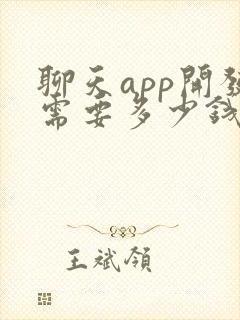 聊天app開發
需要多少錢
王斌領